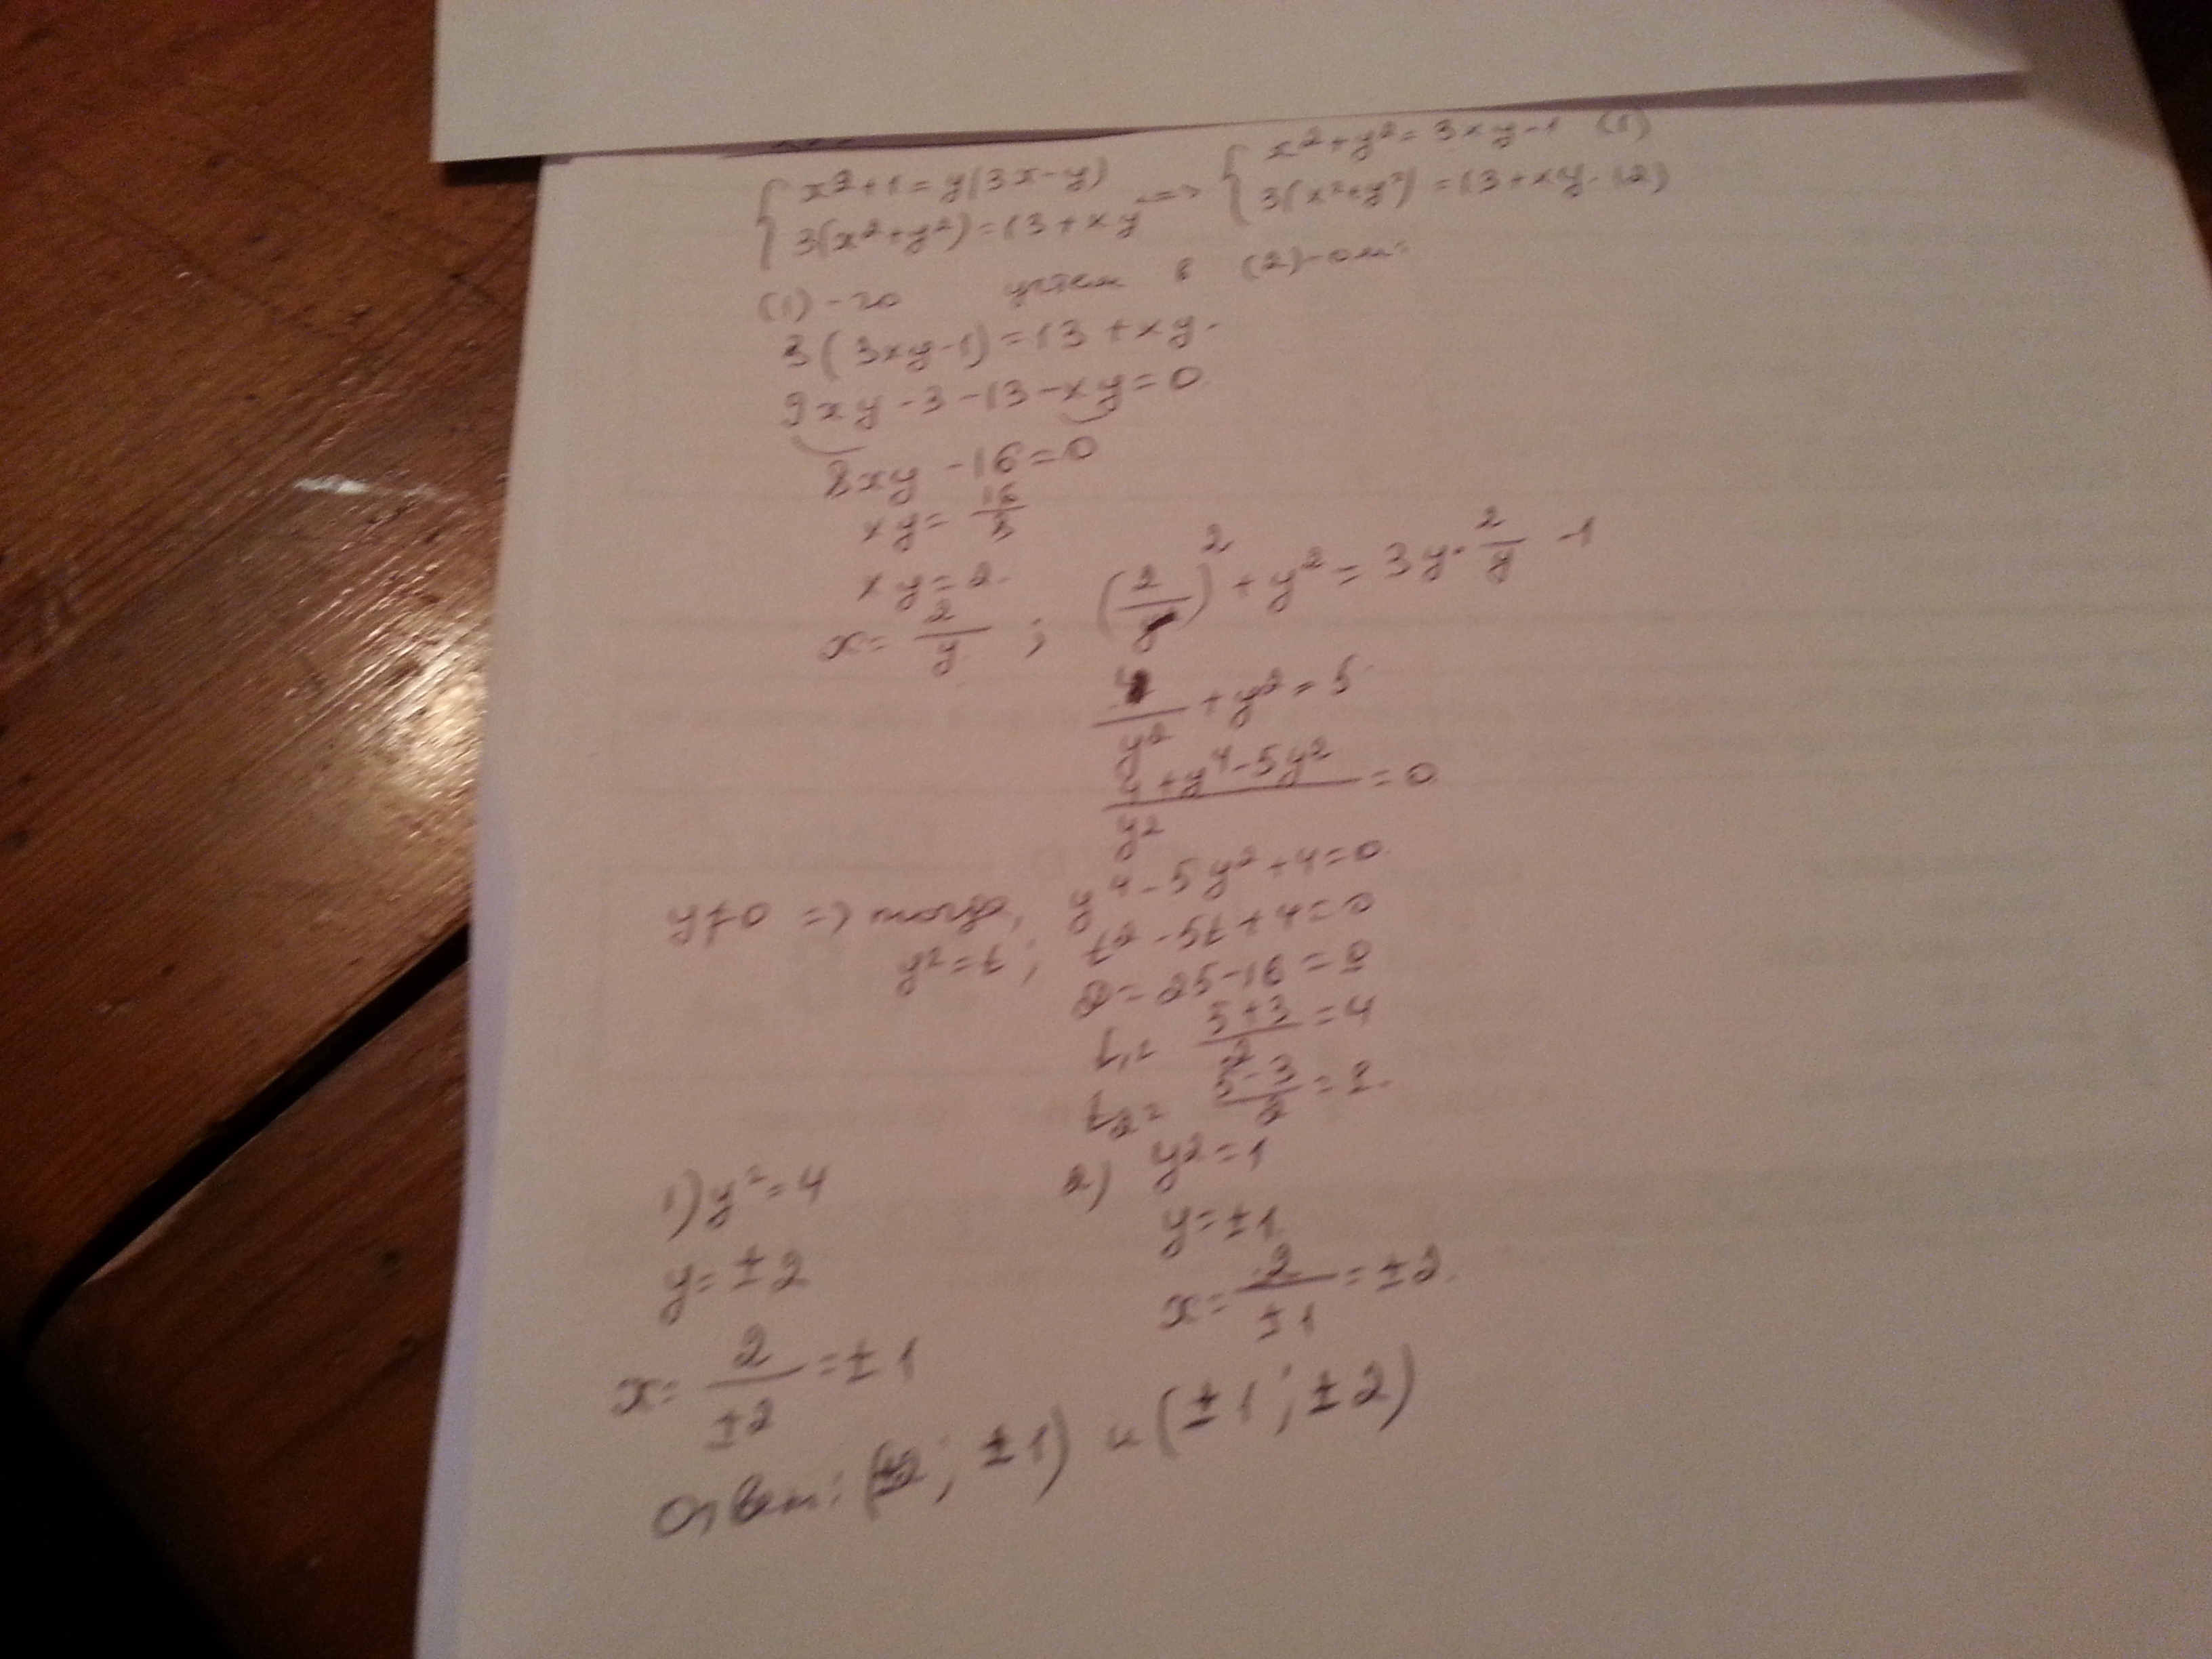 { x² + 1 = y(3x - y)
3(x² + y²) = 13 + xy => { x² + y² = 3xy - 1 (1)
3(x² + y²) = 13 + xy. (2)
(1) - го учтём в (2)-ом:
3(3xy - 1) = 13 + xy.
9xy - 3 - 13 - xy = 0
8xy - 16 = 0
xy = 16/8
xy = 2.
x = 2/y ; (2/y)² + y² = 3y · 2/y - 1
4/y² + y² = 5
(4 + y⁴ - 5y²)/y² = 0
y ≠ 0 => тогда, y⁴ - 5y² + 4 = 0
y² = t; t² - 5t + 4 = 0
D = 25 - 16 = 9
t₁ = (5 + 3)/2 = 4
t₂ = (5 - 3)/2 = 1.
1) y² = 4
y = ±2
x = 2/±2 = ±1
2) y² = 1
y = ±1
x = 2/±1 = ±2.
Ответ: (±2; ±1) и (±1; ±2)